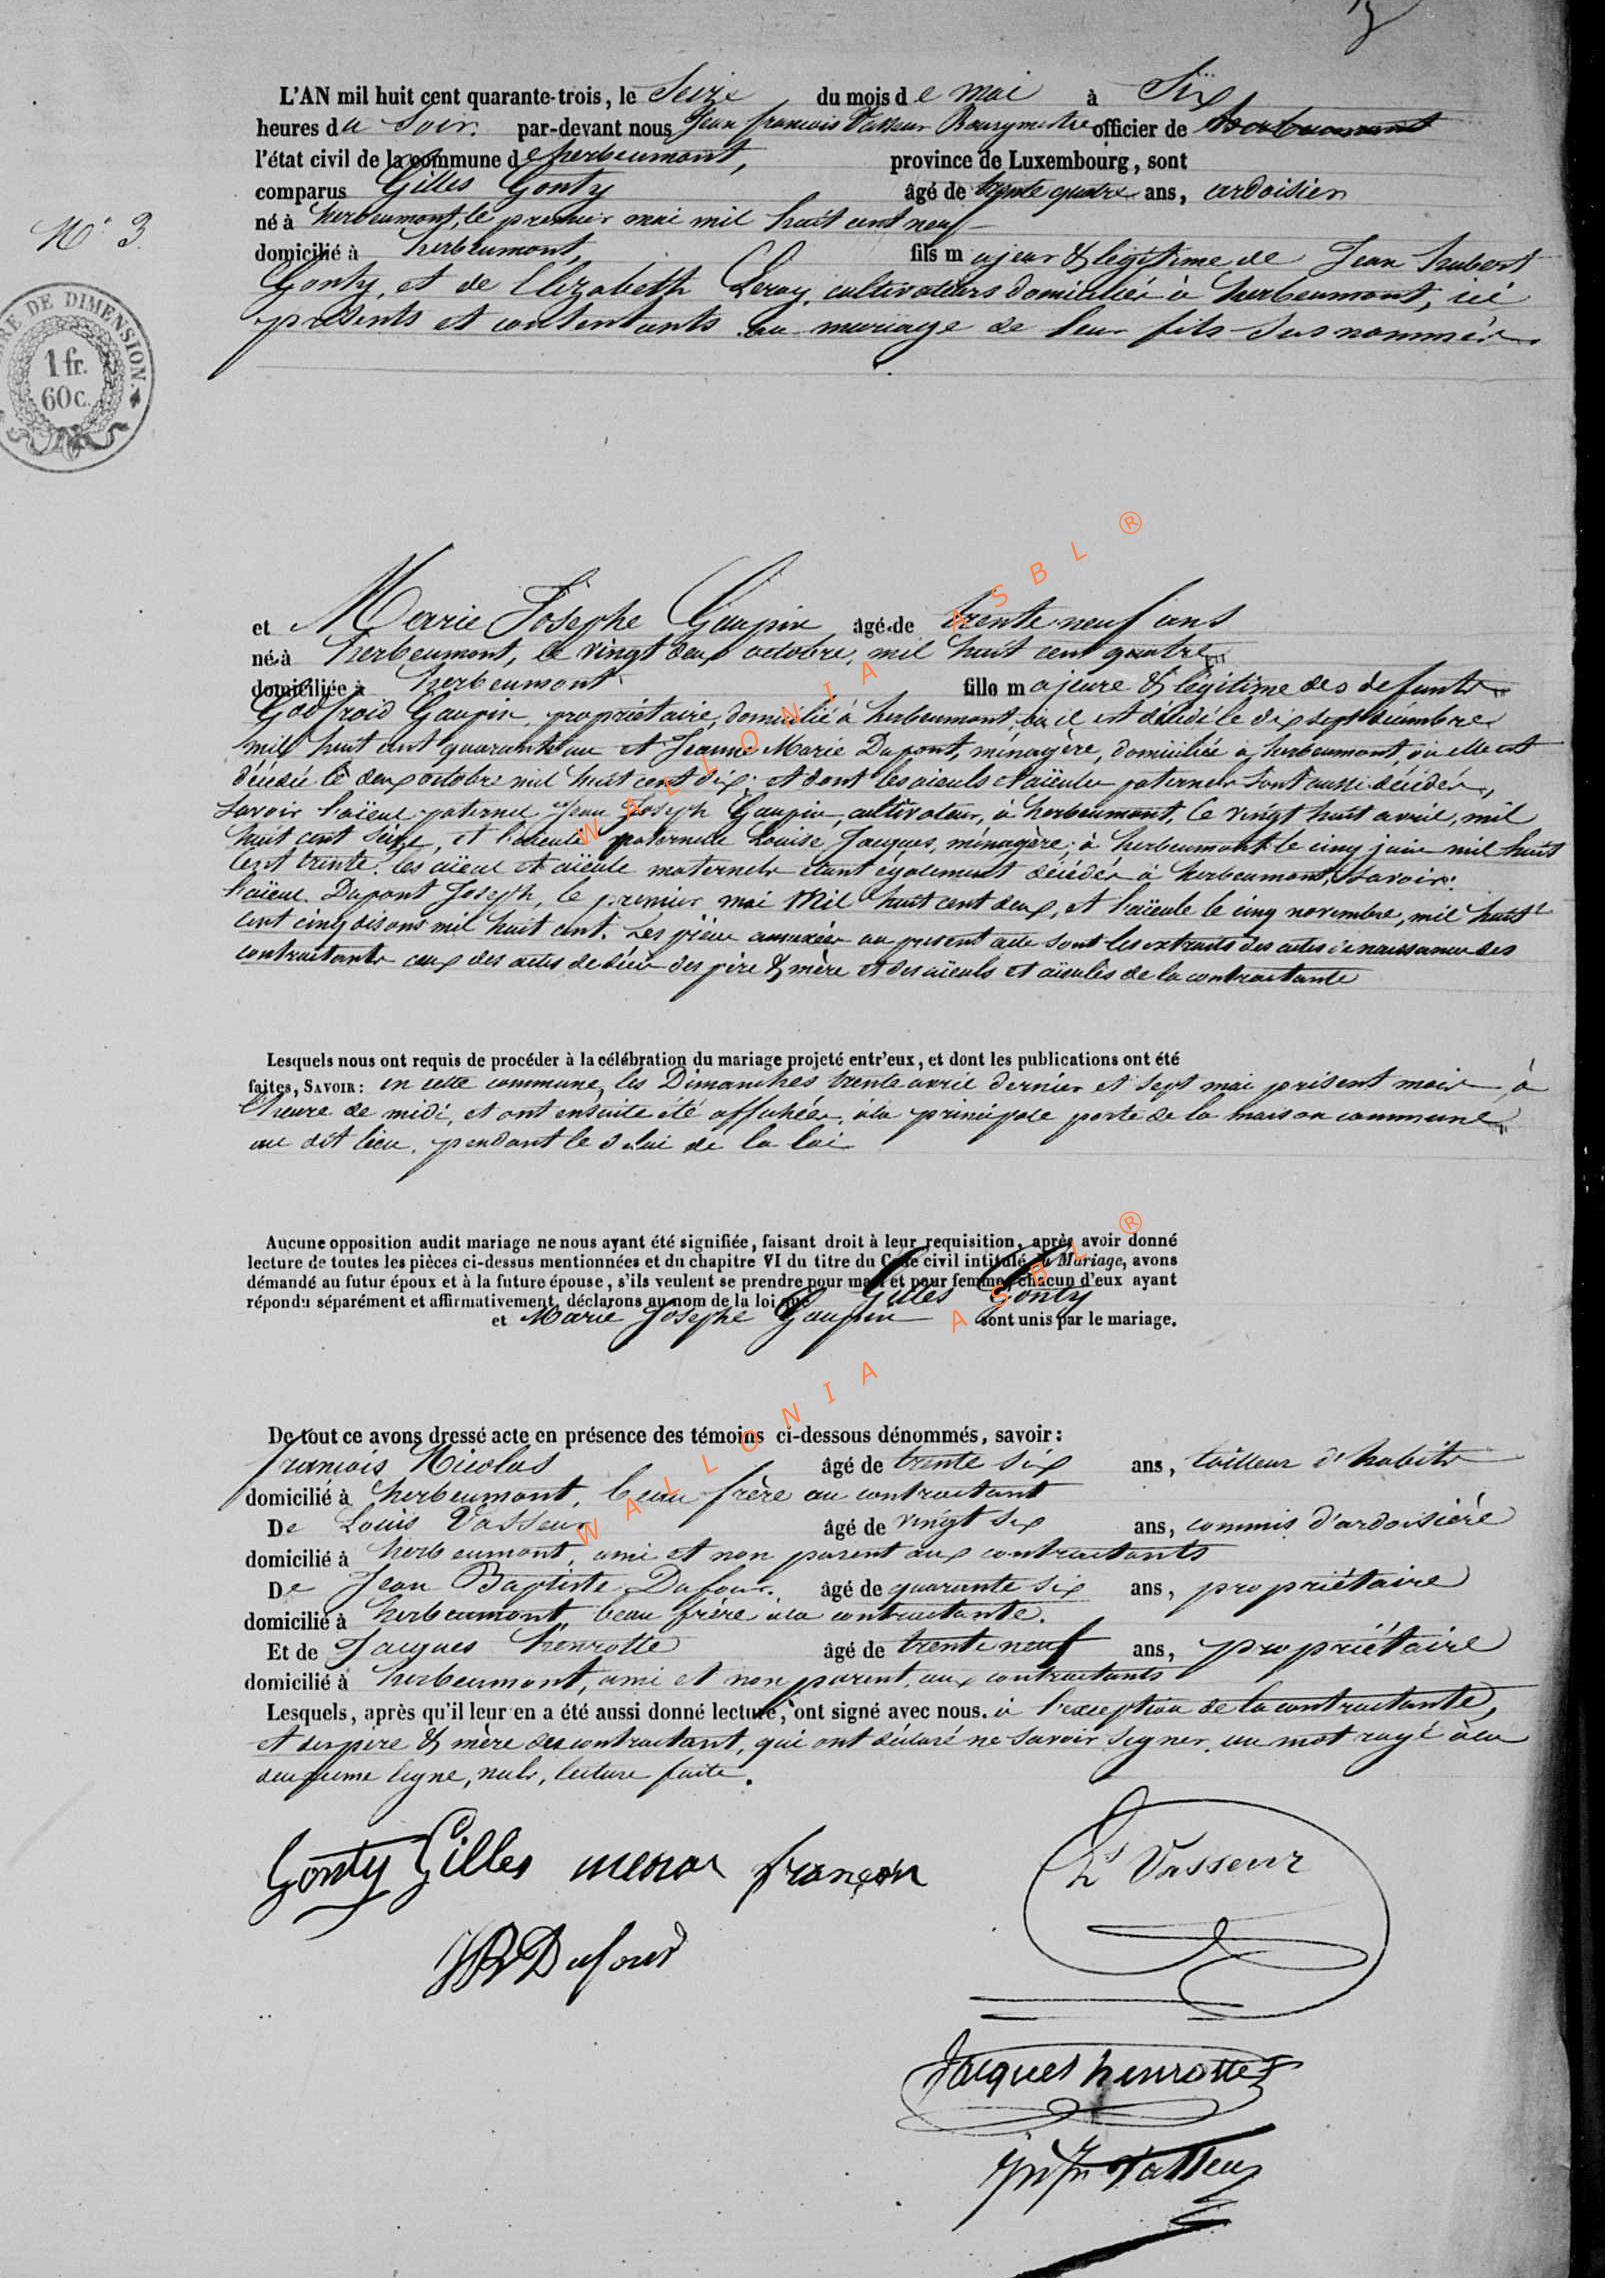 L'AN mil huit cent quarante-trois, le Seize du mois de mai à Six
heures du Soir. par-devant nous Jean françois Vasseur Bourgmestre officier de
l'état civil de la commune de herbeumont, province de Luxembourg, sont
comparus Gilles Gonty âgé de trente quatre ans, ardoisier
N° 3.
né à herbeumont, le premier mai mil huit cent neuf
domicilié à herbeumont, fils majeur & légitime de Jean hubert
Gonty, et de Elizabeth Leroy, cultivateurs domiciliés à herbeumont, ici
présents et contentants au mariage de leur fils susnommé
RE DE DIMENSION.
1 fr.
60 c.
et Marie Josephe Gaupin âgé de trente neuf ans
né à herbeumont, le vingt deux octobre, mil huit cent quatre
domiciliée à herbeumont fille majeure & légitime des defunts
Godfroid Gaupin, propriétaire, domicilié à herbeumont, où il est décédé le dix sept décembre
mil huit cent quarante un et Jeanne Marie Dupont, ménagère, domiciliée à herbeumont, où elle est
décédée le deux octobre mil huit cent dix; et dont les aieuls et aïeules paternels sont aussi décédés,
Savoir l'aïeul paternel Jean Joseph Gaupin, cultivateur, à herbeumont, le vingt huit avril, mil
huit cent Seize, et l'aïeule paternelle Louise Jacques, ménagère, à herbeumont le cinq juin mil huit
cent trente. les aïeul et aïeule maternels étant également décédés à herbeumont, Savoir:
l'aïeul Dupont Joseph, le premier mai Mil huit cent deux, et l'aïeule le cinq novembre, mil huit
cent cinq disons mil huit cent. Les pièces annexées au présent acte sont les extraits des actes de naissance des
contractants ceux des actes de décès des père & mère et des aïeuls et aïeules de la contractante
Lesquels nous ont requis de procéder à la célébration du mariage projeté entr'eux, et dont les publications ont été
faites, SAVOIR: en cette commune, les Dimanches trente avril dernier et sept mai présent mois, à
l'heure de midi, et ont ensuite été affichées, à la principale porte de la maison commune
au dit lieu, pendant le delai de la loi
Aucune opposition audit mariage ne nous ayant été signifiée, faisant droit à leur requisition, après avoir donné
lecture de toutes les pièces ci-dessus mentionnées et du chapitre VI du titre du Code civil intitulé du Mariage, avons
démandé au futur époux et à la future épouse, s'ils veulent se prendre pour mari et pour femme, chacun d'eux ayant
répondu séparément et affirmativement, déclarons au nom de la loi que Gilles Gonty
et Marie Josephe Gaupin sont unis par le mariage.
De tout ce avons dressé acte en présence des témoins ci-dessous dénommés, savoir:
françois Nicolas âgé de trente six ans, tailleur d'habits
domicilié à herbeumont, beau frère au contractant
De Louis Vasseur âgé de vingt six ans, commis d'ardoisière
domicilié à herbeumont, ami et non parent aux contractants
De Jean Baptiste Dufour. âgé de quarante six ans, propriétaire
domicilié à herbeumont beau frère à la contractante.
Et de Jacques henrotte âgé de trente neuf ans, propriétaire
domicilié à herbeumont, ami et non parent aux contractants
Lesquels, après qu'il leur en a été aussi donné lecture, ont signé avec nous. à l'exception de la contractante,
et des père & mère du contractant, qui ont déclaré ne savoir signer. un mot rayé à la
deuxieme ligne, nuls, lecture faite.
Gonty Gilles françois
Ls Vasseur
JB Dufour
Jacques henrotte
Vasseur
WALLONIA ASBL ®
WALLONIA ASBL ®